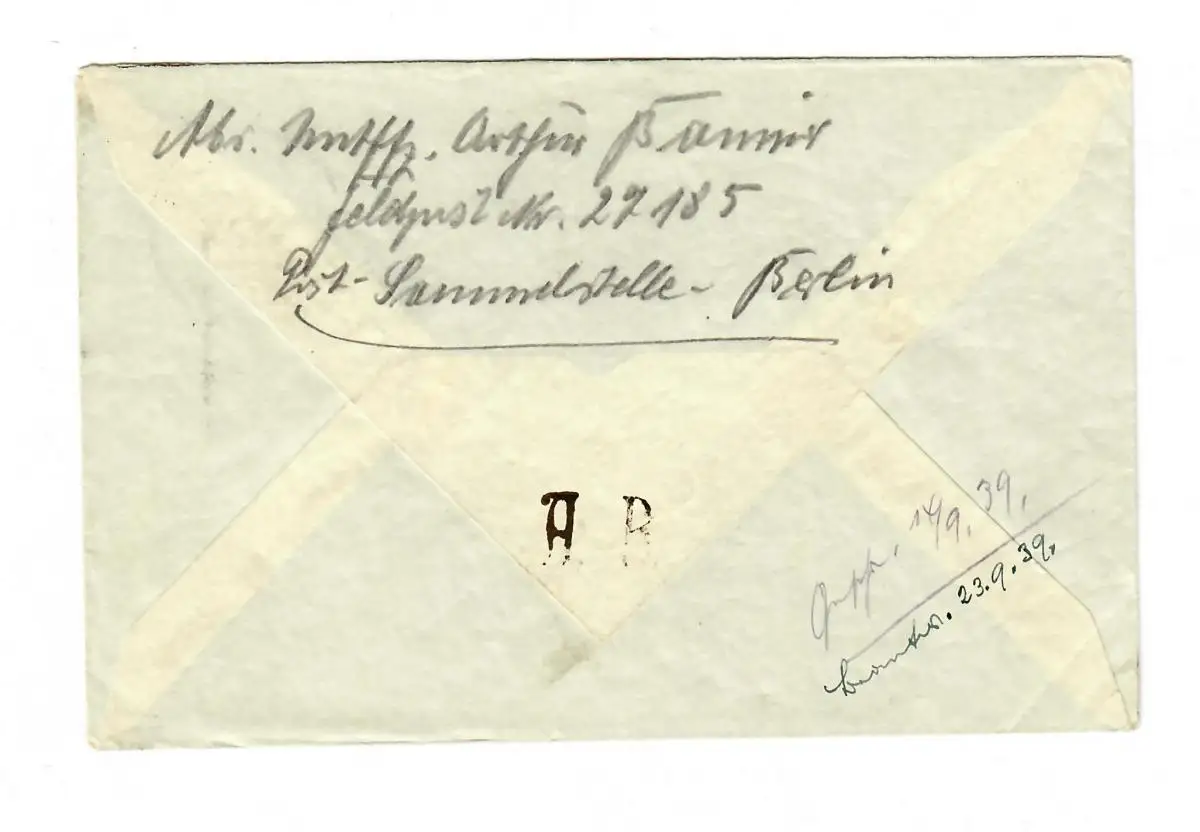 Abs. Uffz. Arthur
Feldpost Nr. 27185
Post-Sammelstelle- Berlin
A B
14/9. 39.
beantw. 23.9.39.